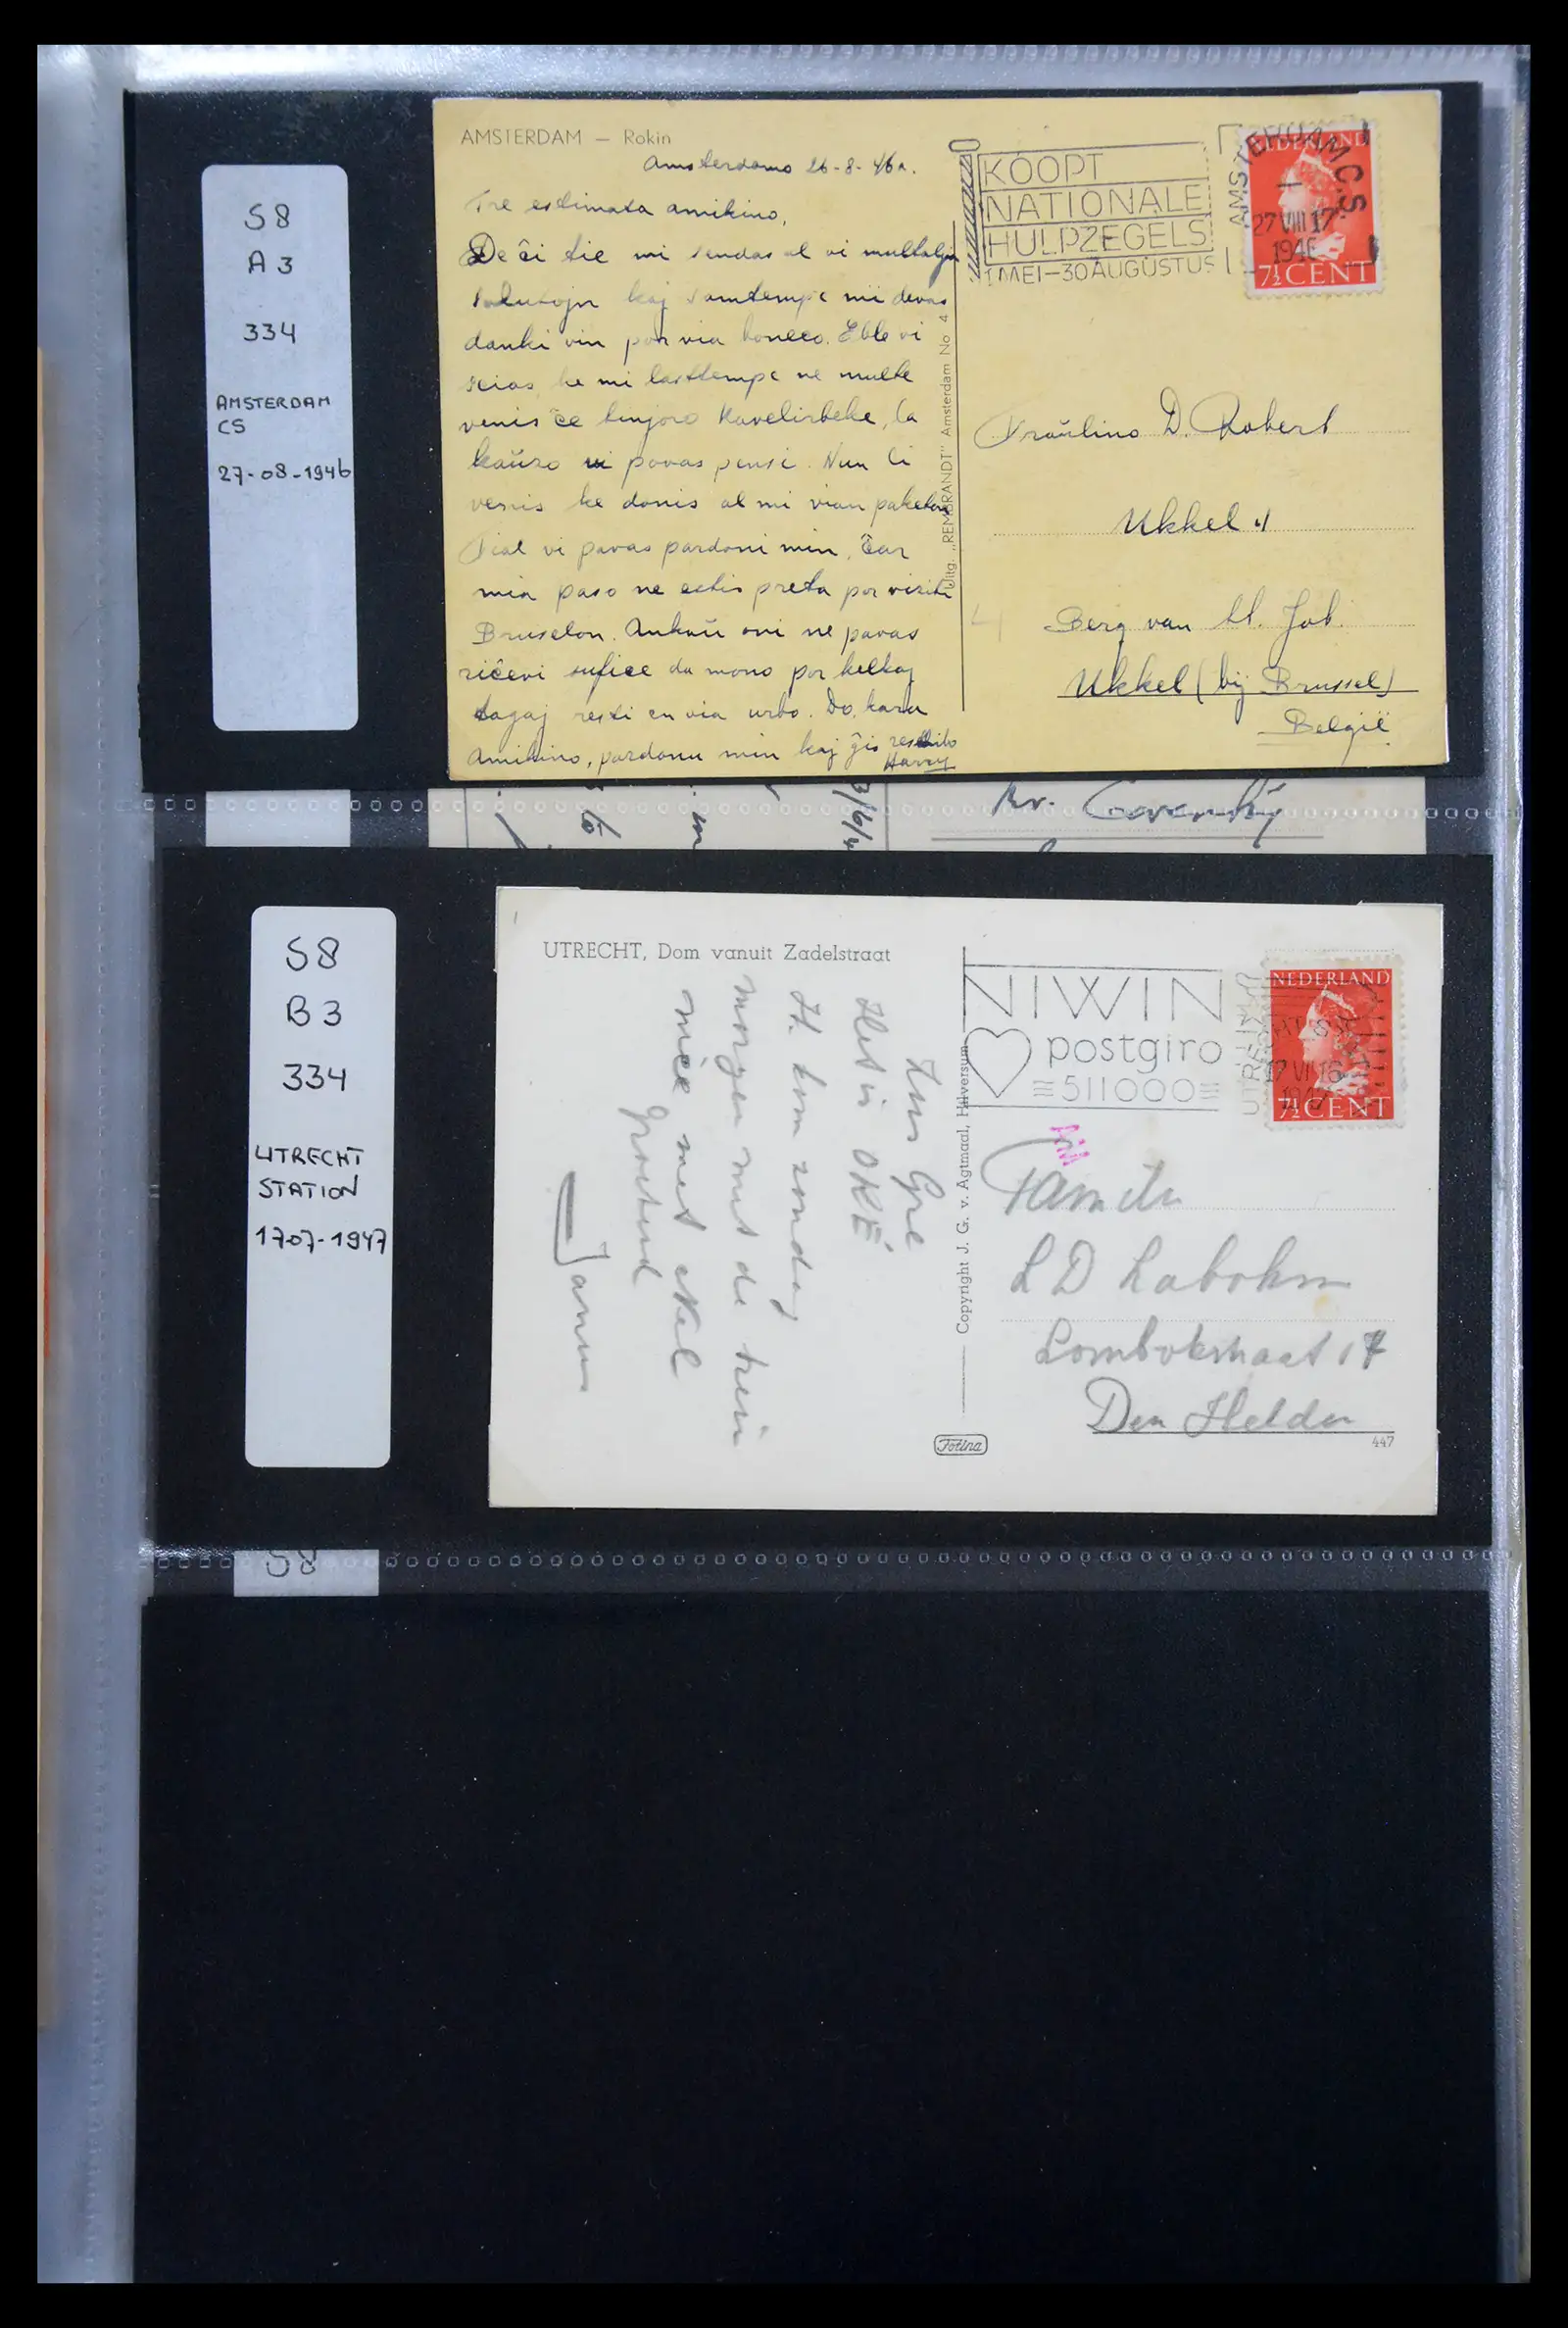 S8
A3
334
AMSTERDAM
CS
27-08-1946
AMSTERDAM — Rokin
Amsterdamo 26-8-46a.
Tre estimata amikino,
De ĉi tie mi sendas al vi multajn
salutojn kaj samtempe mi devas
danki vin por via boneco. Eble vi
scias, ke mi lasttempe ne multe
venis ĉe
kaŭzo vi povas pensi. Nun li
venis ke donis al mi vian paketon
Tial vi povas pardoni min, ĉar
mia paso ne estis preta por viziti
Bruselon. Ankaŭ oni ne povas
ricevi sufiĉe da mono por kelkaj
tagaj resti en via urbo. Do, kara
Amikino, pardonu min kaj ĝis
Harry
Uitg. „REMBRANDT" Amsterdam No 4
KOOPT
NATIONALE
HULPZEGELS
1 MEI–30 AUGUSTUS
AMSTERDAM C.S.
1
27 VIII 17
1946
NEDERLAND
7½ CENT
Fraŭlino D. Robert
Ukkel
Berg van St. Job.
Ukkel (bij Brussel)
België
Coventry
S8
B3
334
UTRECHT
STATION
17-07-1947
UTRECHT, Dom vanuit Zadelstraat
Zus Gré
Het is OKÉ
H. kom zondag
morgen met de trein
niet met
Groetend
Janus
Copyright J. G. v. Agtmaal, Hilversum
NIWIN
postgiro
511000
17 VII 16
NEDERLAND
7½ CENT
Familie
L D
Lombokstraat 17
Den Helder
447
Fotina
S8